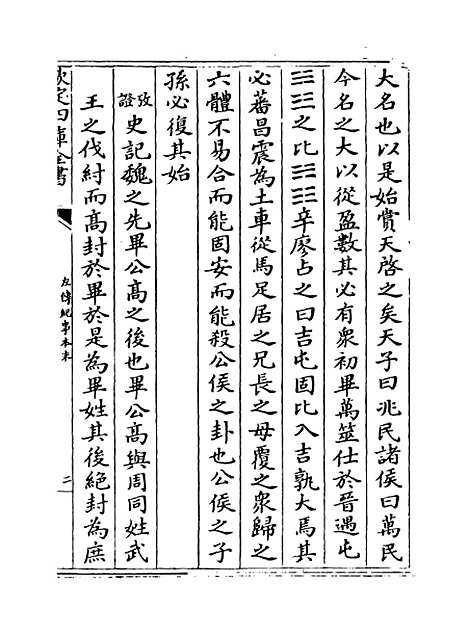 大名也以是始賞天啓之矣天子曰兆民諸侯曰萬民
今名之大以從盈數其必有衆初畢萬筮仕於晉遇屯
䷂之比䷇辛廖占之曰吉屯固比入吉孰大焉其
必蕃昌震為土車從馬足居之兄長之母覆之衆歸之
六體不易合而能固安而能殺公侯之卦也公侯之子
孫必復其始
攷證史記魏之先畢公髙之後也畢公髙與周同姓武
王之伐紂而髙封於畢於是為畢姓其後絶封為庶
欽定四庫全書
左傳紀事本末
二